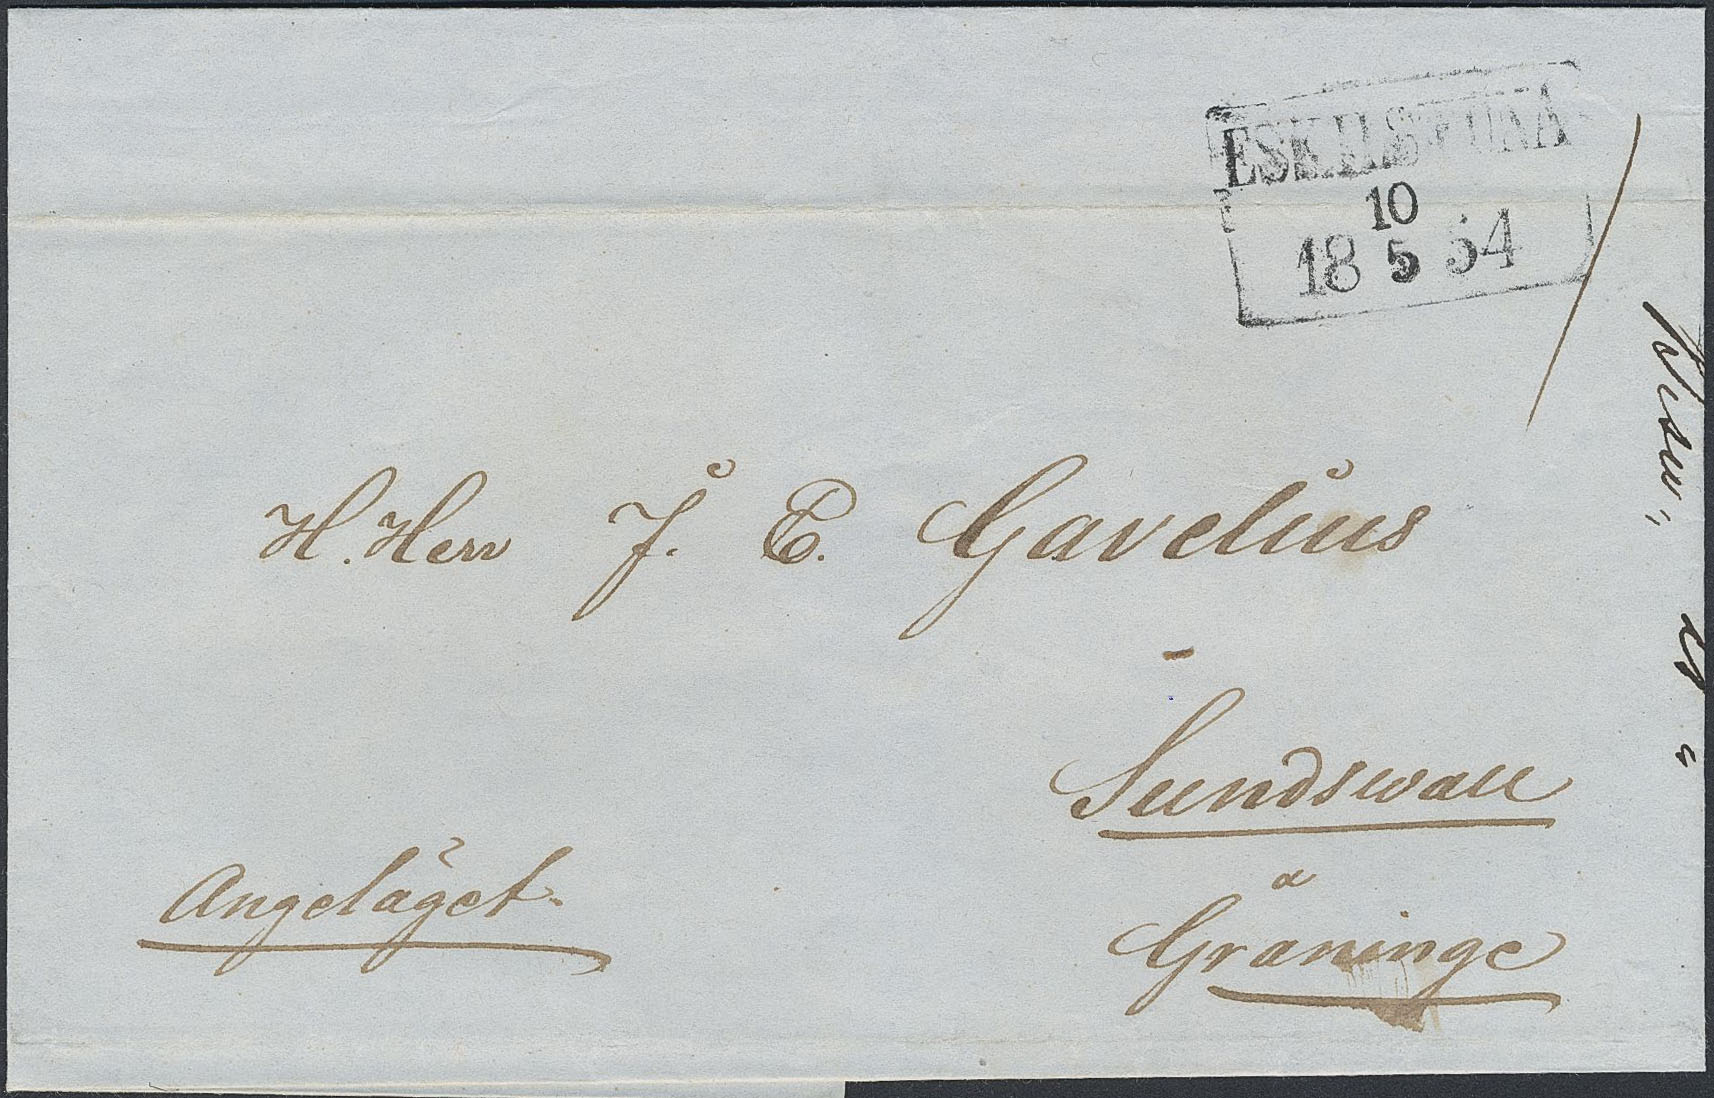 ESKILSTUNA
10
18 5 54
H. Herr J. E. Gavelius
Sundswall
Angeläget.
å
Graninge